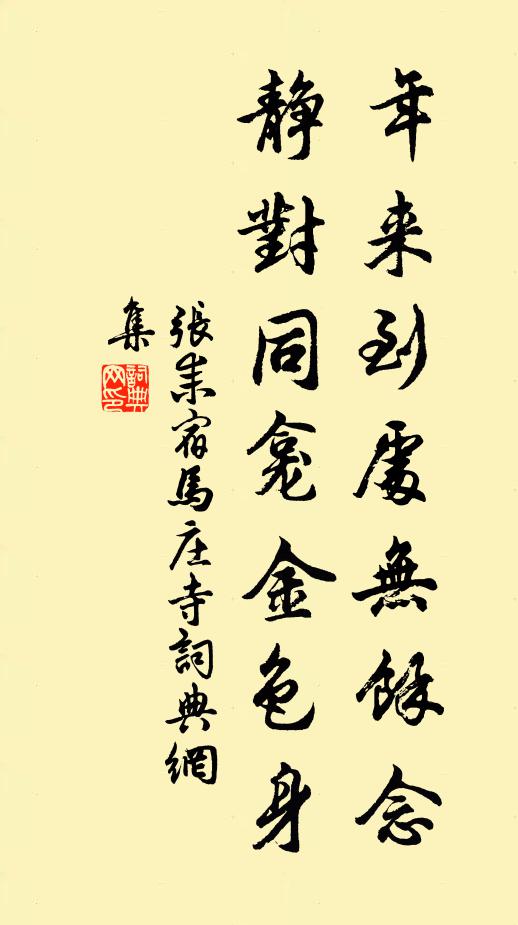 年来到處無餘念
靜對同龕金色身
張耒宿馬庄寺詞典網
集
詞典網印